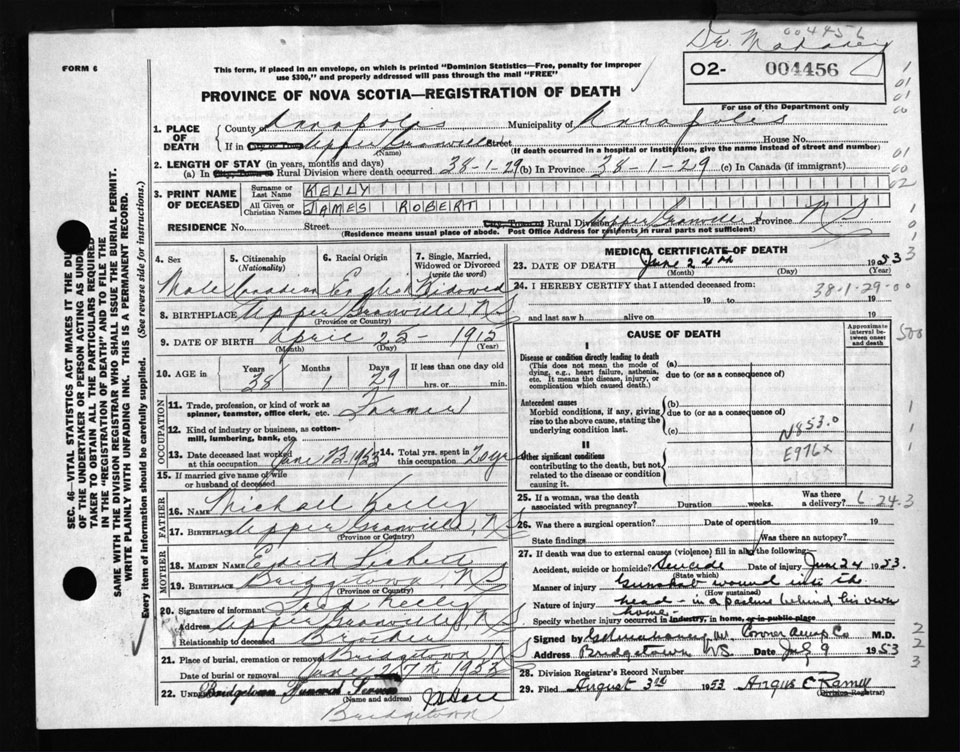 004456
Dr. Mahaney
FORM 6
This form, if placed in an envelope, on which is printed "Dominion Statistics—Free, penalty for improper
use $300," and properly addressed will pass through the mail "FREE"
O2- 004456
PROVINCE OF NOVA SCOTIA—REGISTRATION OF DEATH
For use of the Department only
1. PLACE OF DEATH
County of Annapolis Municipality of Annapolis
If in City or Town Upper Granville Street House No.
(Name) (If death occurred in a hospital or institution, give the name instead of street and number)
2. LENGTH OF STAY (in years, months and days)
(a) In City, Town or Rural Division where death occurred 38-1-29 (b) In Province 38-1-29 (c) In Canada (if immigrant)
3. PRINT NAME OF DECEASED
Surname or Last Name KELLY
All Given or Christian Names JAMES ROBERT
RESIDENCE No. Street City, Town or Rural Division Upper Granville Province NS
(Residence means usual place of abode. Post Office Address for residents in rural parts not sufficient)
4. Sex
5. Citizenship (Nationality)
6. Racial Origin
7. Single, Married, Widowed or Divorced (write the word)
Male Canadian English Widowed
8. BIRTHPLACE Upper Granville NS
(Province or Country)
9. DATE OF BIRTH April 25 1912
(Month) (Day) (Year)
10. AGE in Years Months Days If less than one day old
38 1 29 hrs. or min.
OCCUPATION
11. Trade, profession, or kind of work as spinner, teamster, office clerk, etc. Farmer
12. Kind of industry or business, as cotton-mill, lumbering, bank, etc.
13. Date deceased last worked at this occupation June 23 1953
14. Total yrs. spent in this occupation 20 yrs
15. If married give name of wife or husband of deceased
FATHER
16. NAME Michall Kelly
17. BIRTHPLACE Upper Granville, NS
(Province or Country)
MOTHER
18. MAIDEN NAME Edith
19. BIRTHPLACE Bridgetown, NS
(Province or Country)
20. Signature of informant Fred Kelly
Address Upper Granville, NS
Relationship to deceased Brother
21. Place of burial, cremation or removal Bridgetown NS
Date of burial or removal June 27th 1953
22. UNDERTAKER Bridgetown Funeral Service
(Name and address)
Bridgetown
MEDICAL CERTIFICATE OF DEATH
23. DATE OF DEATH June 24th 1953
(Month) (Day) (Year)
24. I HEREBY CERTIFY that I attended deceased from:
38-1-29-00
19 to 19
and last saw h alive on 19
CAUSE OF DEATH
Approximate interval between onset and death
I
Disease or condition directly leading to death
(This does not mean the mode of dying, e.g., heart failure, asthenia, etc. It means the disease, injury, or complication which caused death.)
(a)
due to (or as a consequence of)
Antecedent causes
Morbid conditions, if any, giving rise to the above cause, stating the underlying condition last.
(b)
due to (or as a consequence of)
(c)
N853.0
II
E976X
Other significant conditions
contributing to the death, but not related to the disease or condition causing it.
25. If a woman, was the death associated with pregnancy? Duration weeks. Was there a delivery?
6-24-3
26. Was there a surgical operation? Date of operation 19
State findings Was there an autopsy?
27. If death was due to external causes (violence) fill in also the following:
Accident, suicide or homicide? Suicide Date of injury June 24 1953.
(State which)
Manner of injury Gunshot wound into the
(How sustained)
Nature of injury head - in a pasture behind his own
home -
Specify whether injury occurred in industry, in home, or in public place
Signed by M.D.
Address Bridgetown NS Date July 9 1953
28. Division Registrar's Record Number
29. Filed August 3rd 1953 Angus E Ramey
(Division Registrar)
SEC. 46—VITAL STATISTICS ACT MAKES IT THE DUTY
OF THE UNDERTAKER OR PERSON ACTING AS UNDER-
TAKER TO OBTAIN ALL THE PARTICULARS REQUIRED
IN THE "REGISTRATION OF DEATH" AND TO FILE THE
SAME WITH THE DIVISION REGISTRAR WHO SHALL ISSUE THE BURIAL PERMIT.
WRITE PLAINLY WITH UNFADING INK. THIS IS A PERMANENT RECORD.
Every item of information should be carefully supplied. (See reverse side for instructions.)